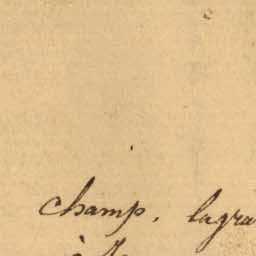 champ. lagra
à